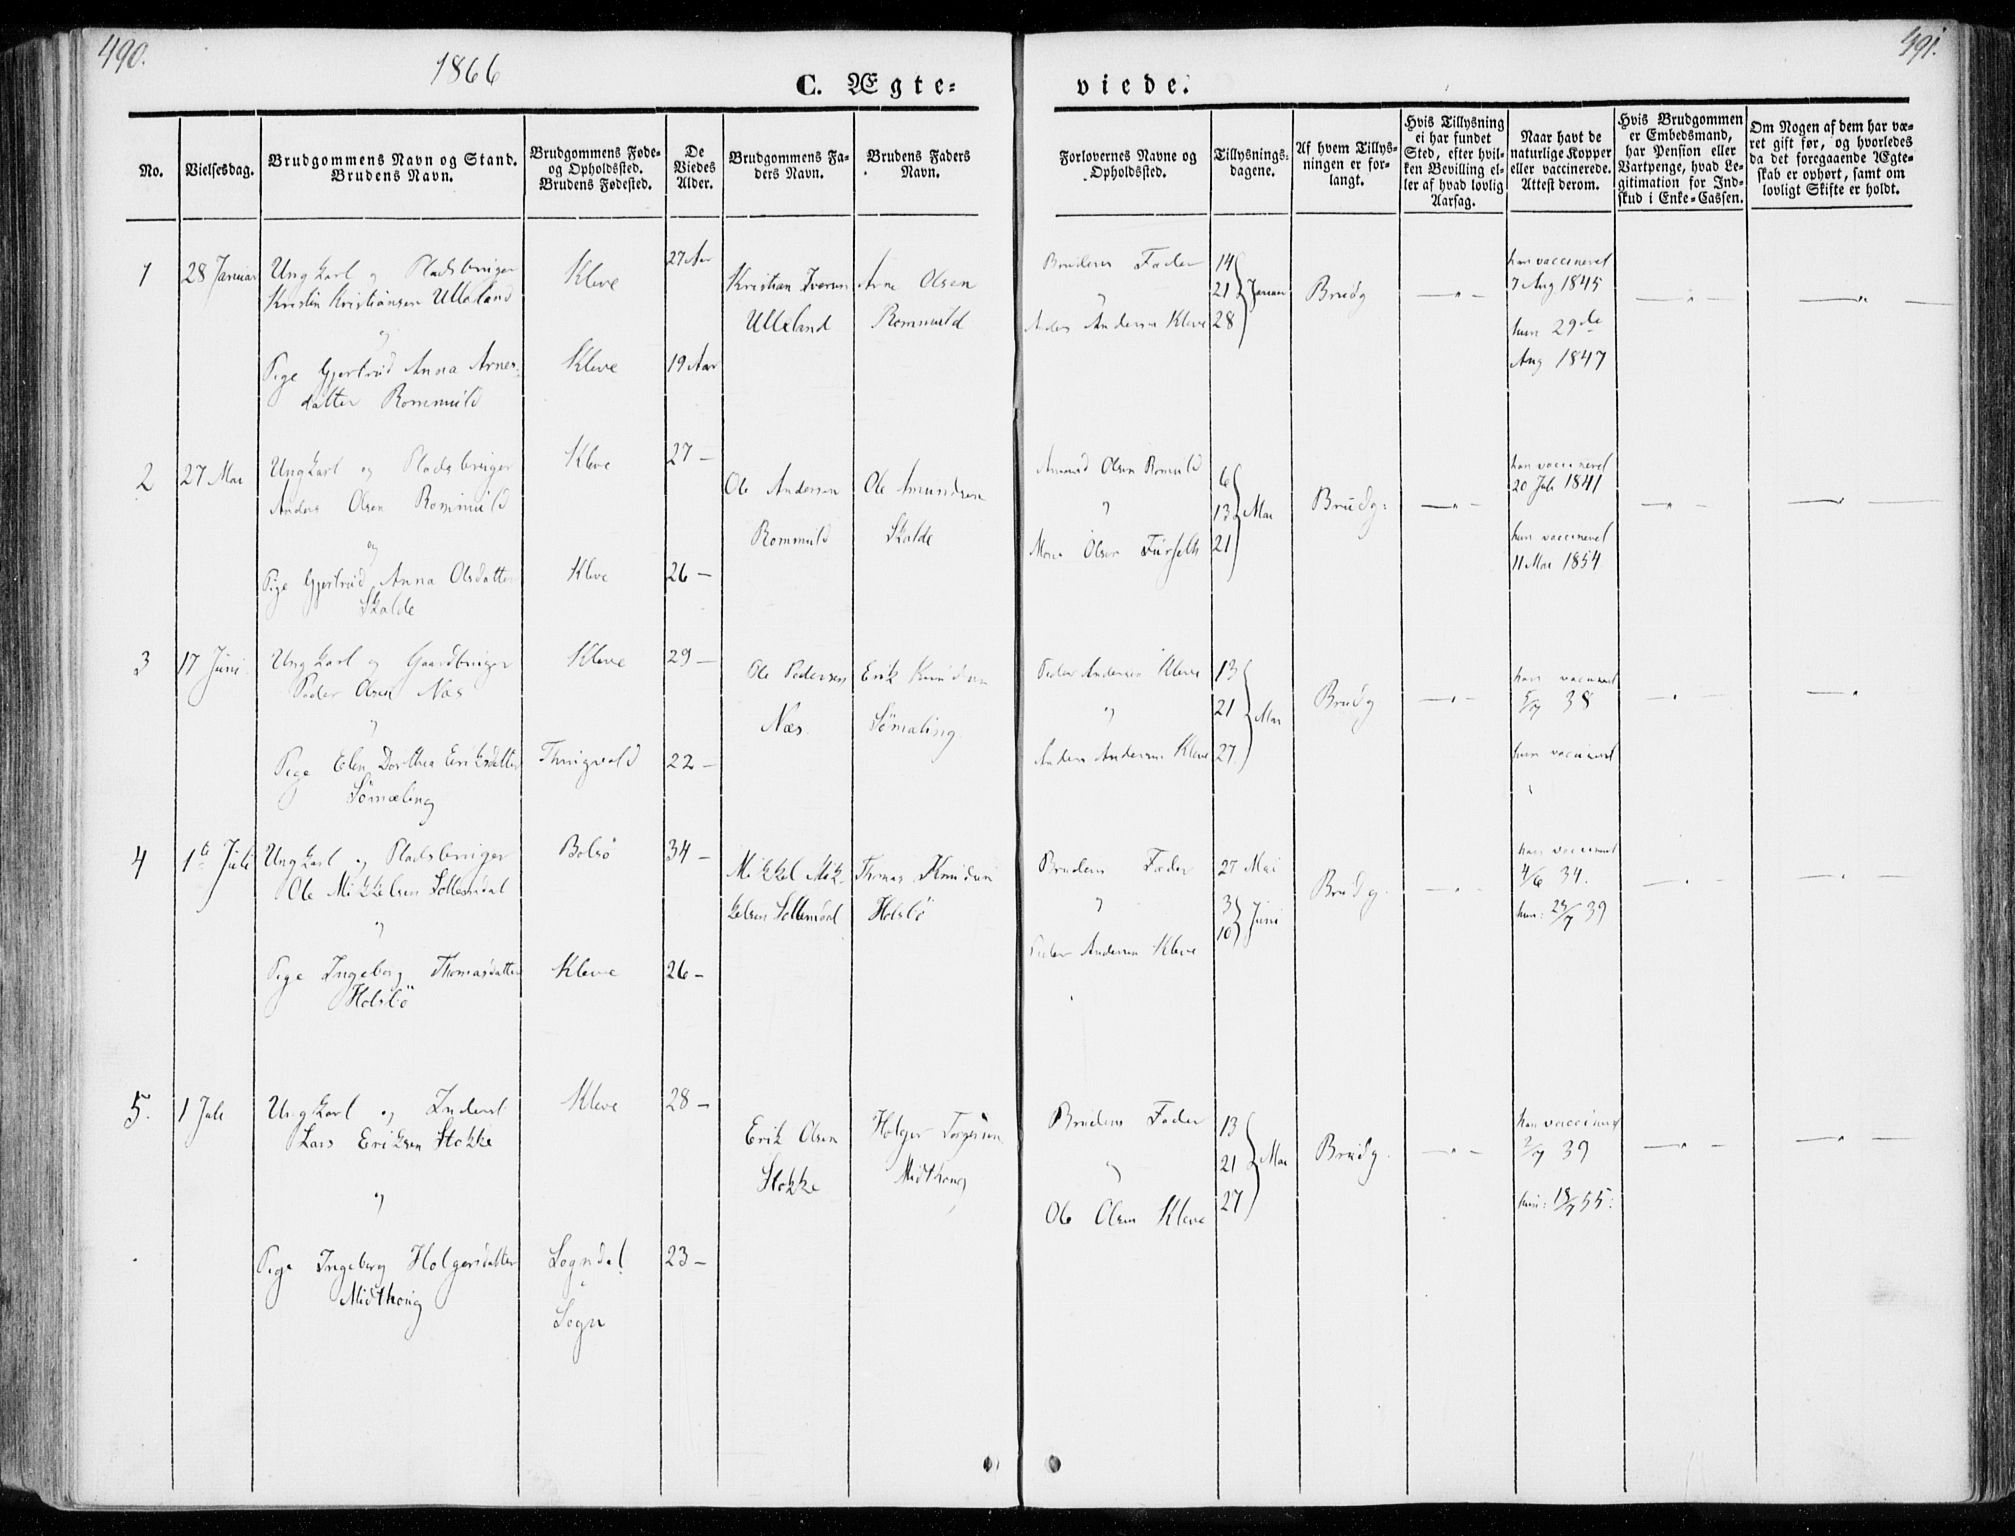 490.
1866
C. Ægte=
viede.
491.
No.
Vielsesdag.
Brudgommens Navn og Stand.
Brudens Navn.
Brudgommens Føde-
og Opholdssted.
Brudens Fødested.
De
Viedes
Alder.
Brudgommens Fa-
ders Navn.
Brudens Faders
Navn.
Forlovernes Navne og
Opholdssted.
Tillysnings-
dagene.
Af hvem Tillys-
ningen er for-
langt.
Hvis Tillysning
ei har fundet
Sted, efter hvil-
ken Bevilling el-
ler af hvad lovlig
Aarsag.
Naar havt de
naturlige Kopper
eller vaccinerede.
Attest derom.
Hvis Brudgommen
er Embedsmand,
har Pension eller
Vartpenge, hvad Le-
gitimation for Ind-
skud i Enke-Cassen.
Om Nogen af dem har væ-
ret gift før, og hvorledes
da det foregaaende Ægte-
skab er ophørt, samt om
lovligt Skifte er holdt.
1
28 Januar
Ungkarl og Pladsbruger
Kristen Kristiansen Ulleland
og
Pige Gjertrud Anna Arnes-
datter Rommuld
Kleve
Kleve
27 Aar
19 Aar
Kristian Iversen
Ulleland
Arne Olsen
Rommuld
Brudens Fader
og
Anders Andersen Kleve
14
21 Januar
28
Brudg
han vaccineret
7 Aug 1845
hun 29de
Aug 1847
2
27 Mai
Ungkarl og Pladsbruger
Anders Olsen Rommuld
og
Pige Gjertrud Anna Olsdatter
Skalde
Kleve
Kleve
27 -
26 -
Ole Andersen
Rommuld
Ole Amundsen
Skalde
Amund Olsen Romuld
og
Olsen
6
13 Mai
21
Brudg:
han vaccineret
20 Juli 1841
hun vaccineret
11 Mai 1854
3
17 Juni
Ungkarl og Gaardbruger
Peder Olsen Næs
og
Pige Elen Dorthea Eriksdatter
Sömæling
Kleve
Thingvold
29 -
22 -
Ole Pedersen
Næs
Erik Knudsen
Sömæling
Peder Andersen Kleve
og
Anders Andersen Kleve
13
21 Mai
27.
Brudg
han vaccineret
5/7 38
hun vaccineret
4
1te Juli
Ungkarl og Pladsbruger
Ole Mikkelsen Sollemdal
og
Pige Ingeborg Thomasdatter
Holsbö
Bolsö
Kleve
34 -
26 -
Mikkel Mik-
kelsen Sollemdal
Thomas Knudsen
Holsbö
Brudens Fader
og
Peder Andersen Kleve
27 Mai
3 Juni
10
Brudg.
han vaccineret
4/6 34.
hun: 29/7 39
5.
1 Juli
Ungkarl og Inderst
Lars Eriksen Stokke
og
Pige Ingeborg Holgersdatter
Midthoug
Kleve
Sogndal
i
Sogn
28 -
23 -
Erik Olsen
Stokke
Holger Torgersen
Midthoug
Brudens Fader
og
Ole Olsen Kleve
13
21 Mai
27
Brudg.
han vaccineret
2/7 39
hun: 18/7 55.